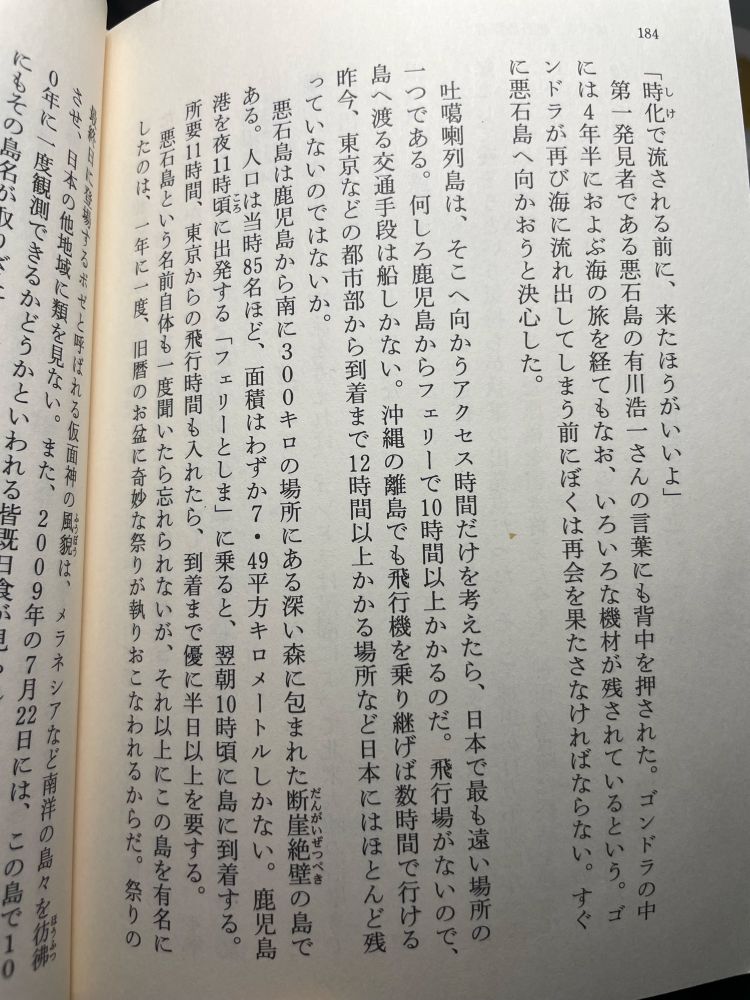 184
「時化で流される前に、来たほうがいいよ」
第一発見者である悪石島の有川浩一さんの言葉にも背中を押された。ゴンドラの中
には4年半におよぶ海の旅を経てもなお、いろいろな機材が残されているという。ゴ
ンドラが再び海に流れ出してしまう前にぼくは再会を果たさなければならない。すぐ
に悪石島へ向かおうと決心した。
吐噶喇列島は、そこへ向かうアクセス時間だけを考えたら、日本で最も遠い場所の
一つである。何しろ鹿児島からフェリーで10時間以上かかるのだ。飛行場がないので、
島へ渡る交通手段は船しかない。沖縄の離島でも飛行機を乗り継げば数時間で行ける
昨今、東京などの都市部から到着まで12時間以上かかる場所など日本にはほとんど残
っていないのではないか。
悪石島は鹿児島から南に300キロの場所にある深い森に包まれた断崖絶壁の島で
ある。人口は当時85名ほど、面積はわずか7・49平方キロメートルしかない。鹿児島
港を夜11時頃に出発する「フェリーとしま」に乗ると、翌朝10時頃に島に到着する。
所要11時間、東京からの飛行時間も入れたら、到着まで優に半日以上を要する。
悪石島という名前自体も一度聞いたら忘れられないが、それ以上にこの島を有名に
したのは、一年に一度、旧暦のお盆に奇妙な祭りが執りおこなわれるからだ。祭りの
最終日に登場するボゼと呼ばれる仮面神の風貌は、メラネシアなど南洋の島々を彷彿
させ、日本の他地域に類を見ない。また、2009年の7月22日には、この島で10
0年に一度観測できるかどうかといわれる皆既日食が見ら
にもその島名が取りざ